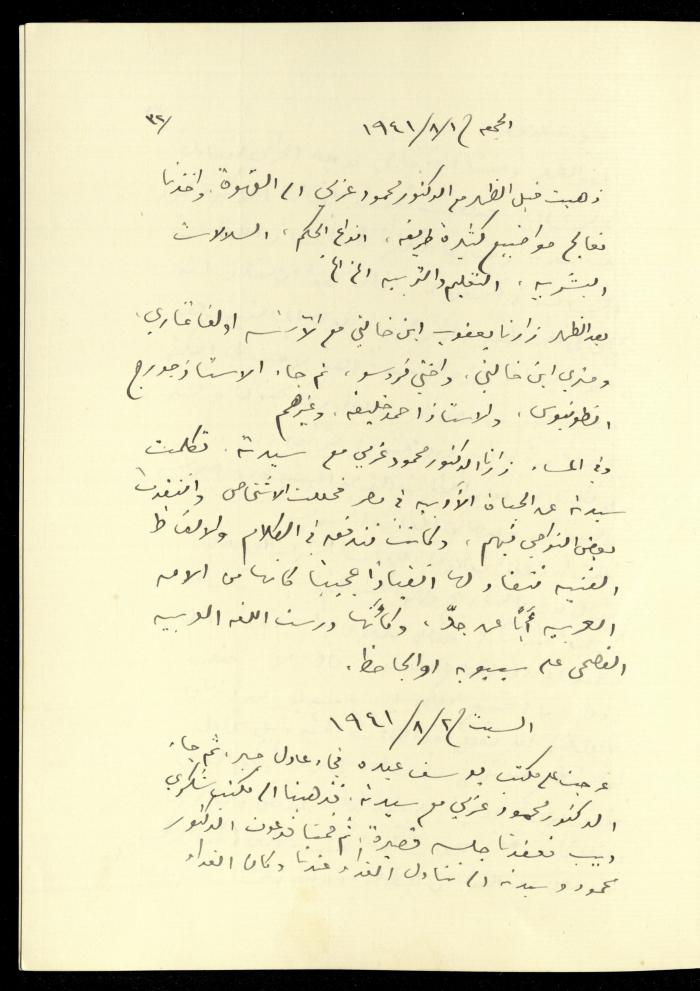 ٣٢/
الجمعه ١/٨/١٩٤١
ذهبت قبل الظهر مع الدكتور محمود عزمي الى القهوة. واخذنا
نعالج مواضيع كثيرة طريفه، انواع الحكم، السلالات
البشريه، التعليم والتربيه الخ الخ.
بعد الظهر زارنا يعقوب ابن خالتي مع الآنسه اولغا
ومتري ابن خالتي، واختي فروسو، ثم جاء الاستاذ جورج
انطونيوس، ولاستاذ احمد خليفه، وغيرهم
وفي المساء زارنا الدكتور محمود عزمي مع سيدته. تكلمت
سيدته عن الحياة الأدبيه في مصر فحللت الاشخاص وانتقدت
بعض النواحي فيهم، وكانت تتدفق في الكلام والالفاظ
الفنيه تنقاد لها انقياداً عجيباً كانها من الامه
العربيه أباً عن جدّ، وكأنّها درست اللغه العربيه
الفصحى على سيبويه او الجاحظ.
السبت ٢/٨/١٩٤١
عرجت على مكتب يوسف عبده فجاء عادل جبر، ثم جاء
الدكتور محمود عزمي مع سيدته. فذهبنا الى مكتب شكري
ديب فعقدنا جلسه قصيرة، ثم قمنا فدعوت الدكتور
محمود وسيدته الى تناول الغداء عندنا وكان الغداء